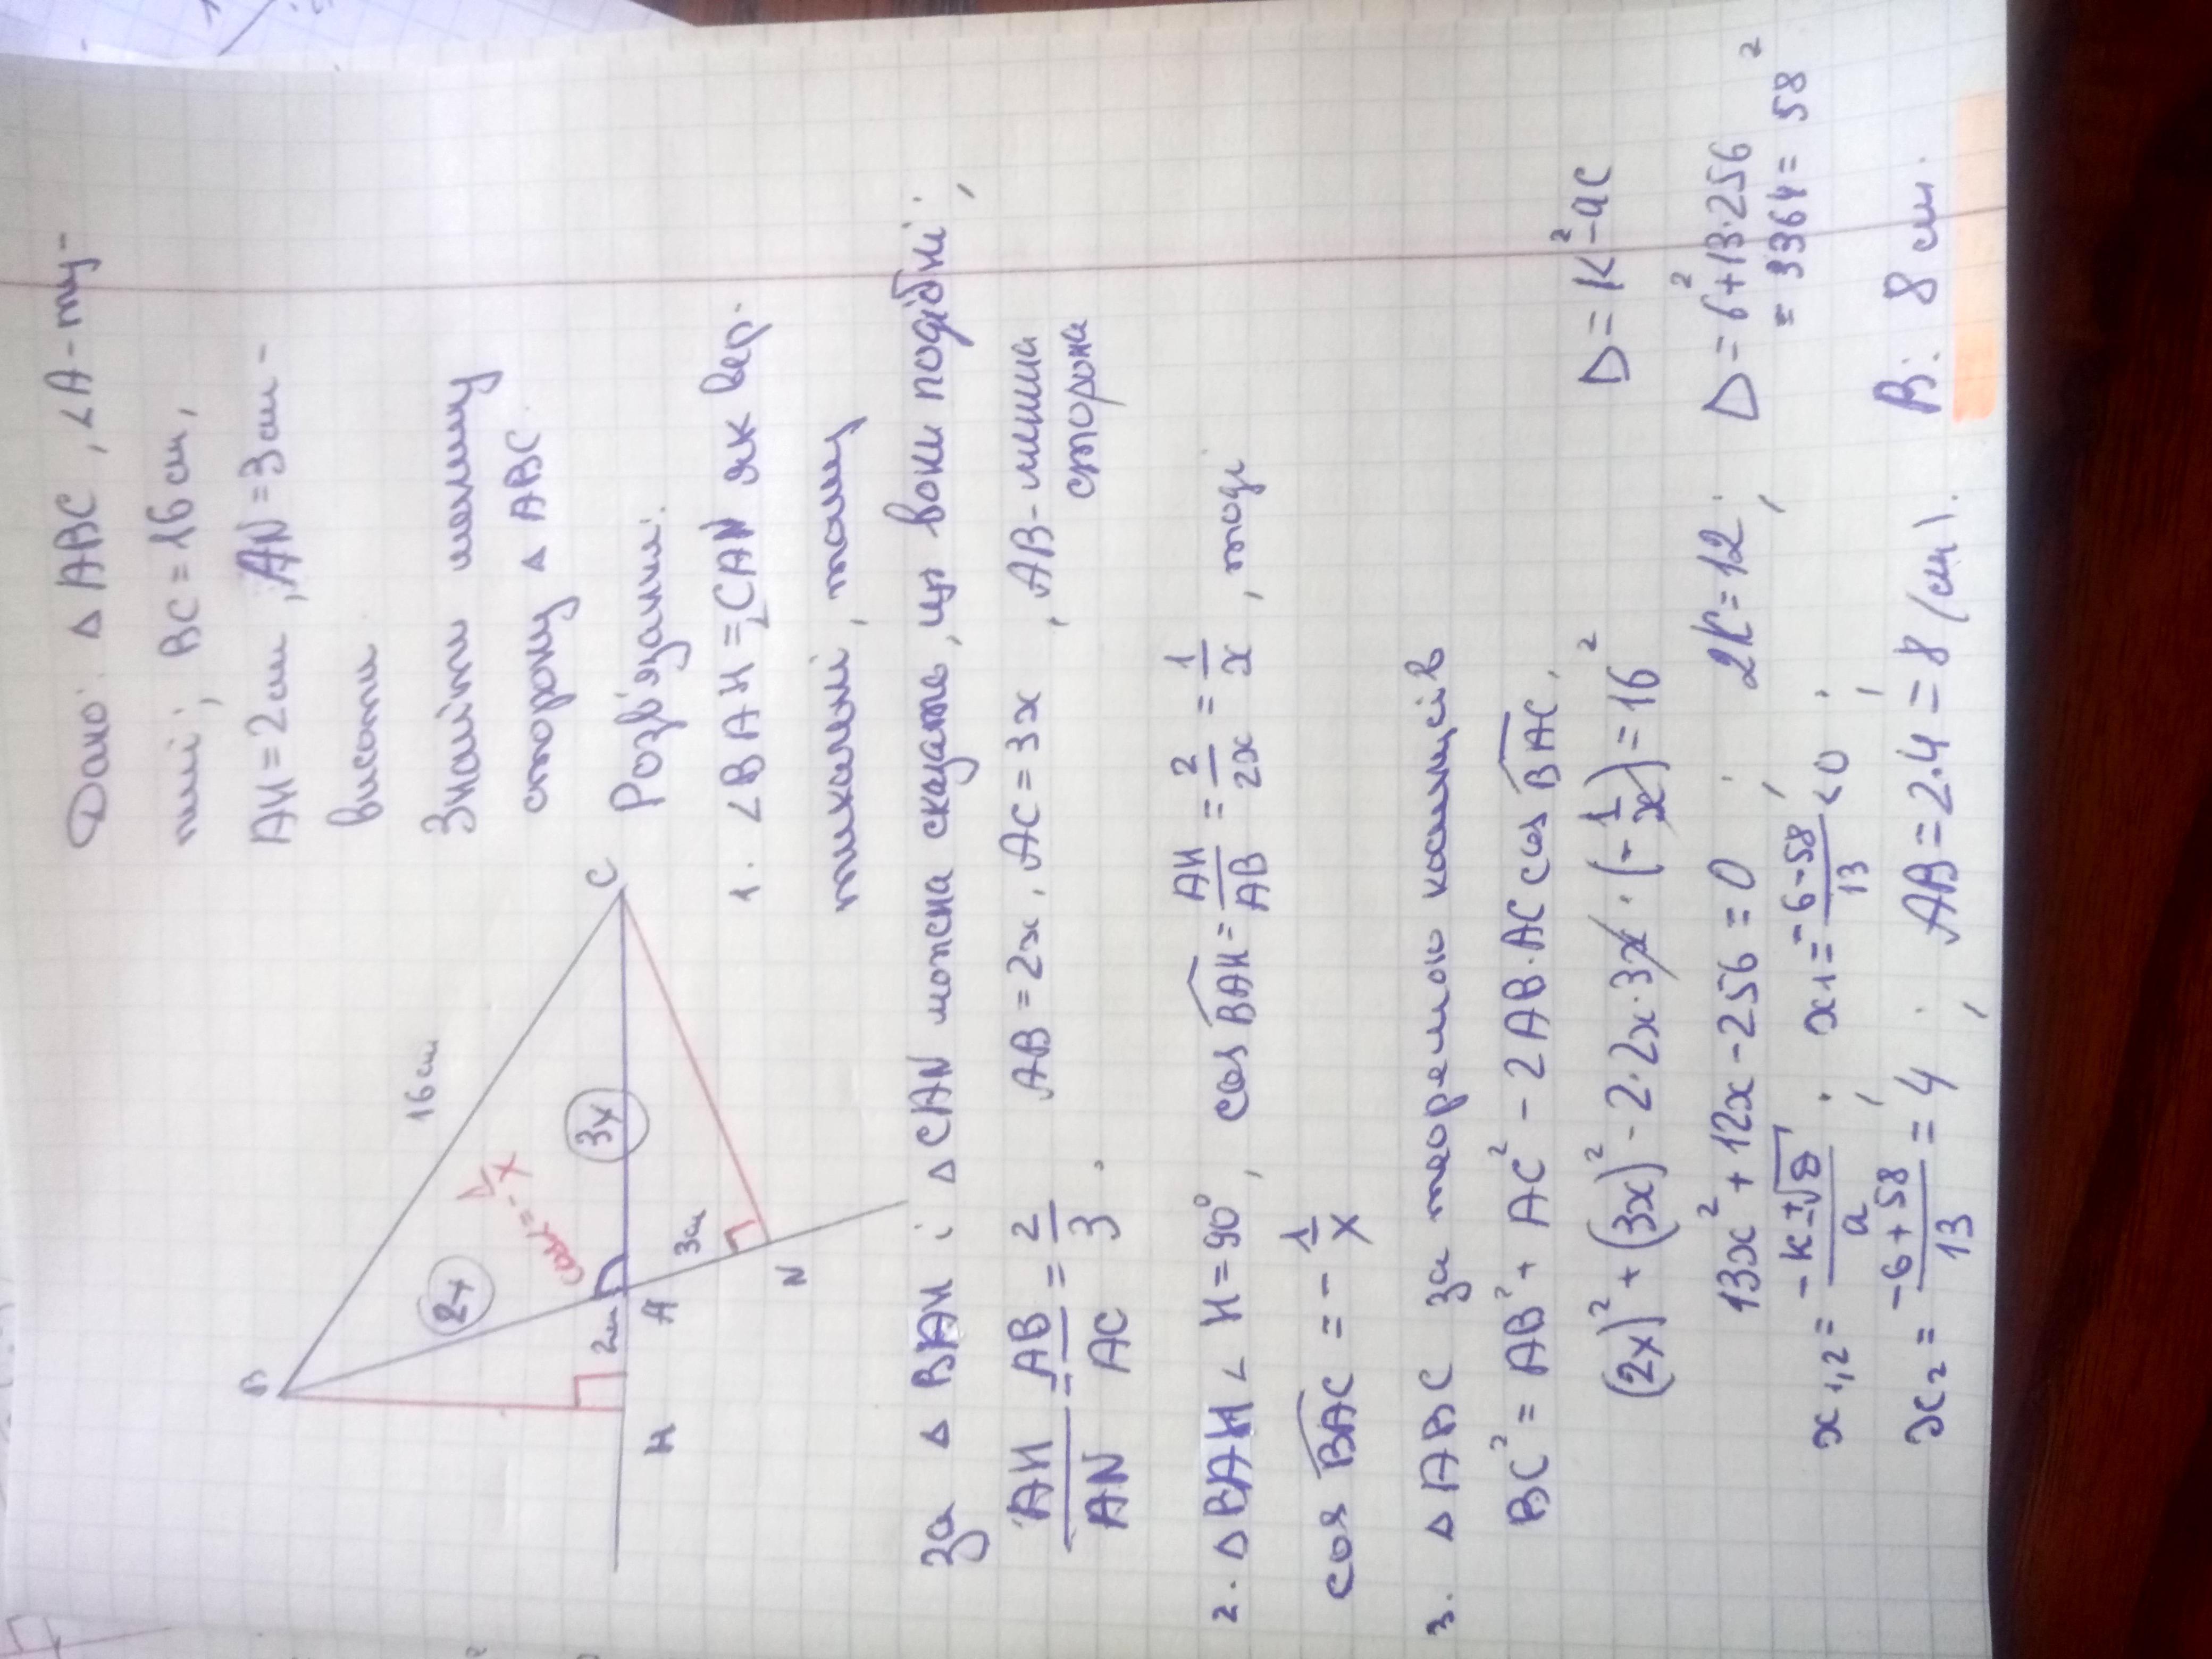 Дано: △ ABC, ∠A - ту-
пий; BC = 16 см,
AH = 2 см, AN = 3 см -
висоти
Знайти меншу
сторону △ ABC.
Розв'язання:
1. ∠BAH = ∠CAN як вер.
тикалні, тому
за △ BAH і △ CAN можна сказать, що вони подібні;
AH/AN = AB/AC = 2/3. AB = 2x, AC = 3x, AB - менша
сторона
2. △BAH ∠ H = 90°, cos BAH = AH/AB = 2/2x = 1/x, тоді
cos BAC = - 1/x
3. △ ABC за теоремою косинусів
BC² = AB² + AC² - 2 AB·AC cos BAC.
(2x)² + (3x)² - 2·2x·3x·(-1/x) = 16²
D = k² - ac
13x² + 12x - 256 = 0; 2k = 12; D = 6² + 13·256
= 3364 = 58²
x₁,₂ = (-k ± √D)/a; x₁ = (-6-58)/13 < 0;
x₂ = (-6+58)/13 = 4; AB = 2·4 = 8 (см). В: 8 см.
B
16 см
2x
cosα = -1/x
3x
C
2 см
H
A
3 см
N